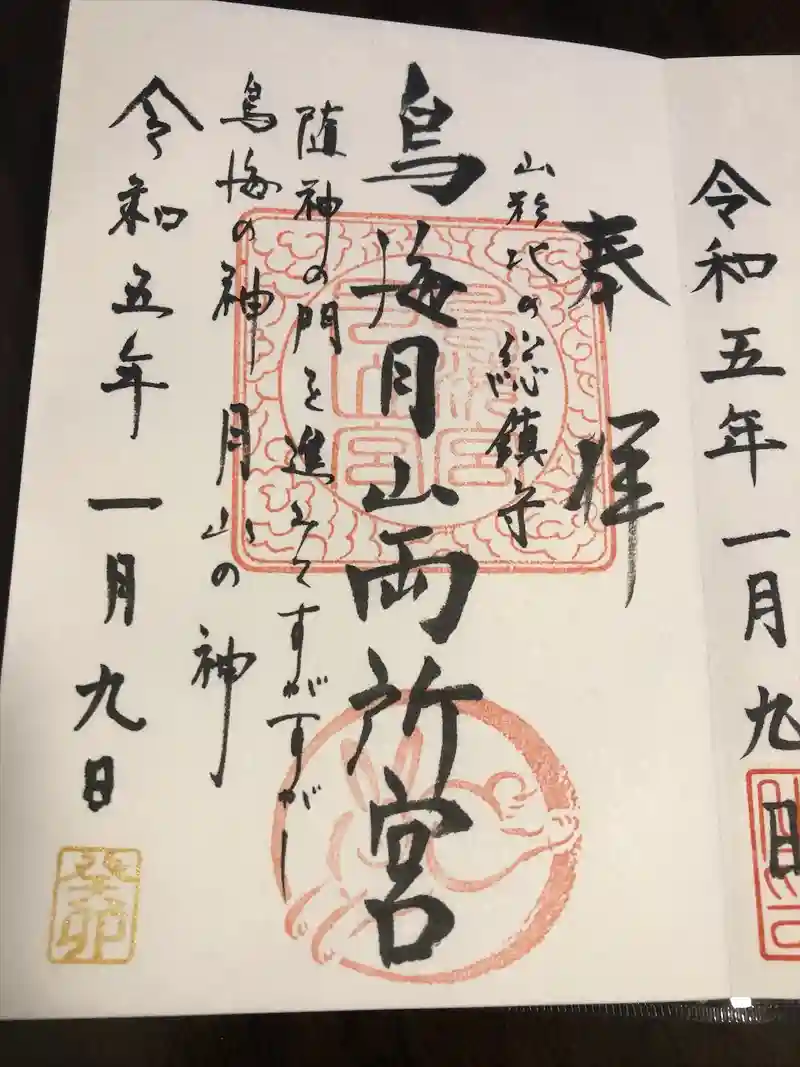 令和五年一月九日
奉拝
山形北の総鎮守
鳥海月山両所宮
随神の門を進みてすがすがし
鳥海の神月山の神
令和五年一月九日
癸卯